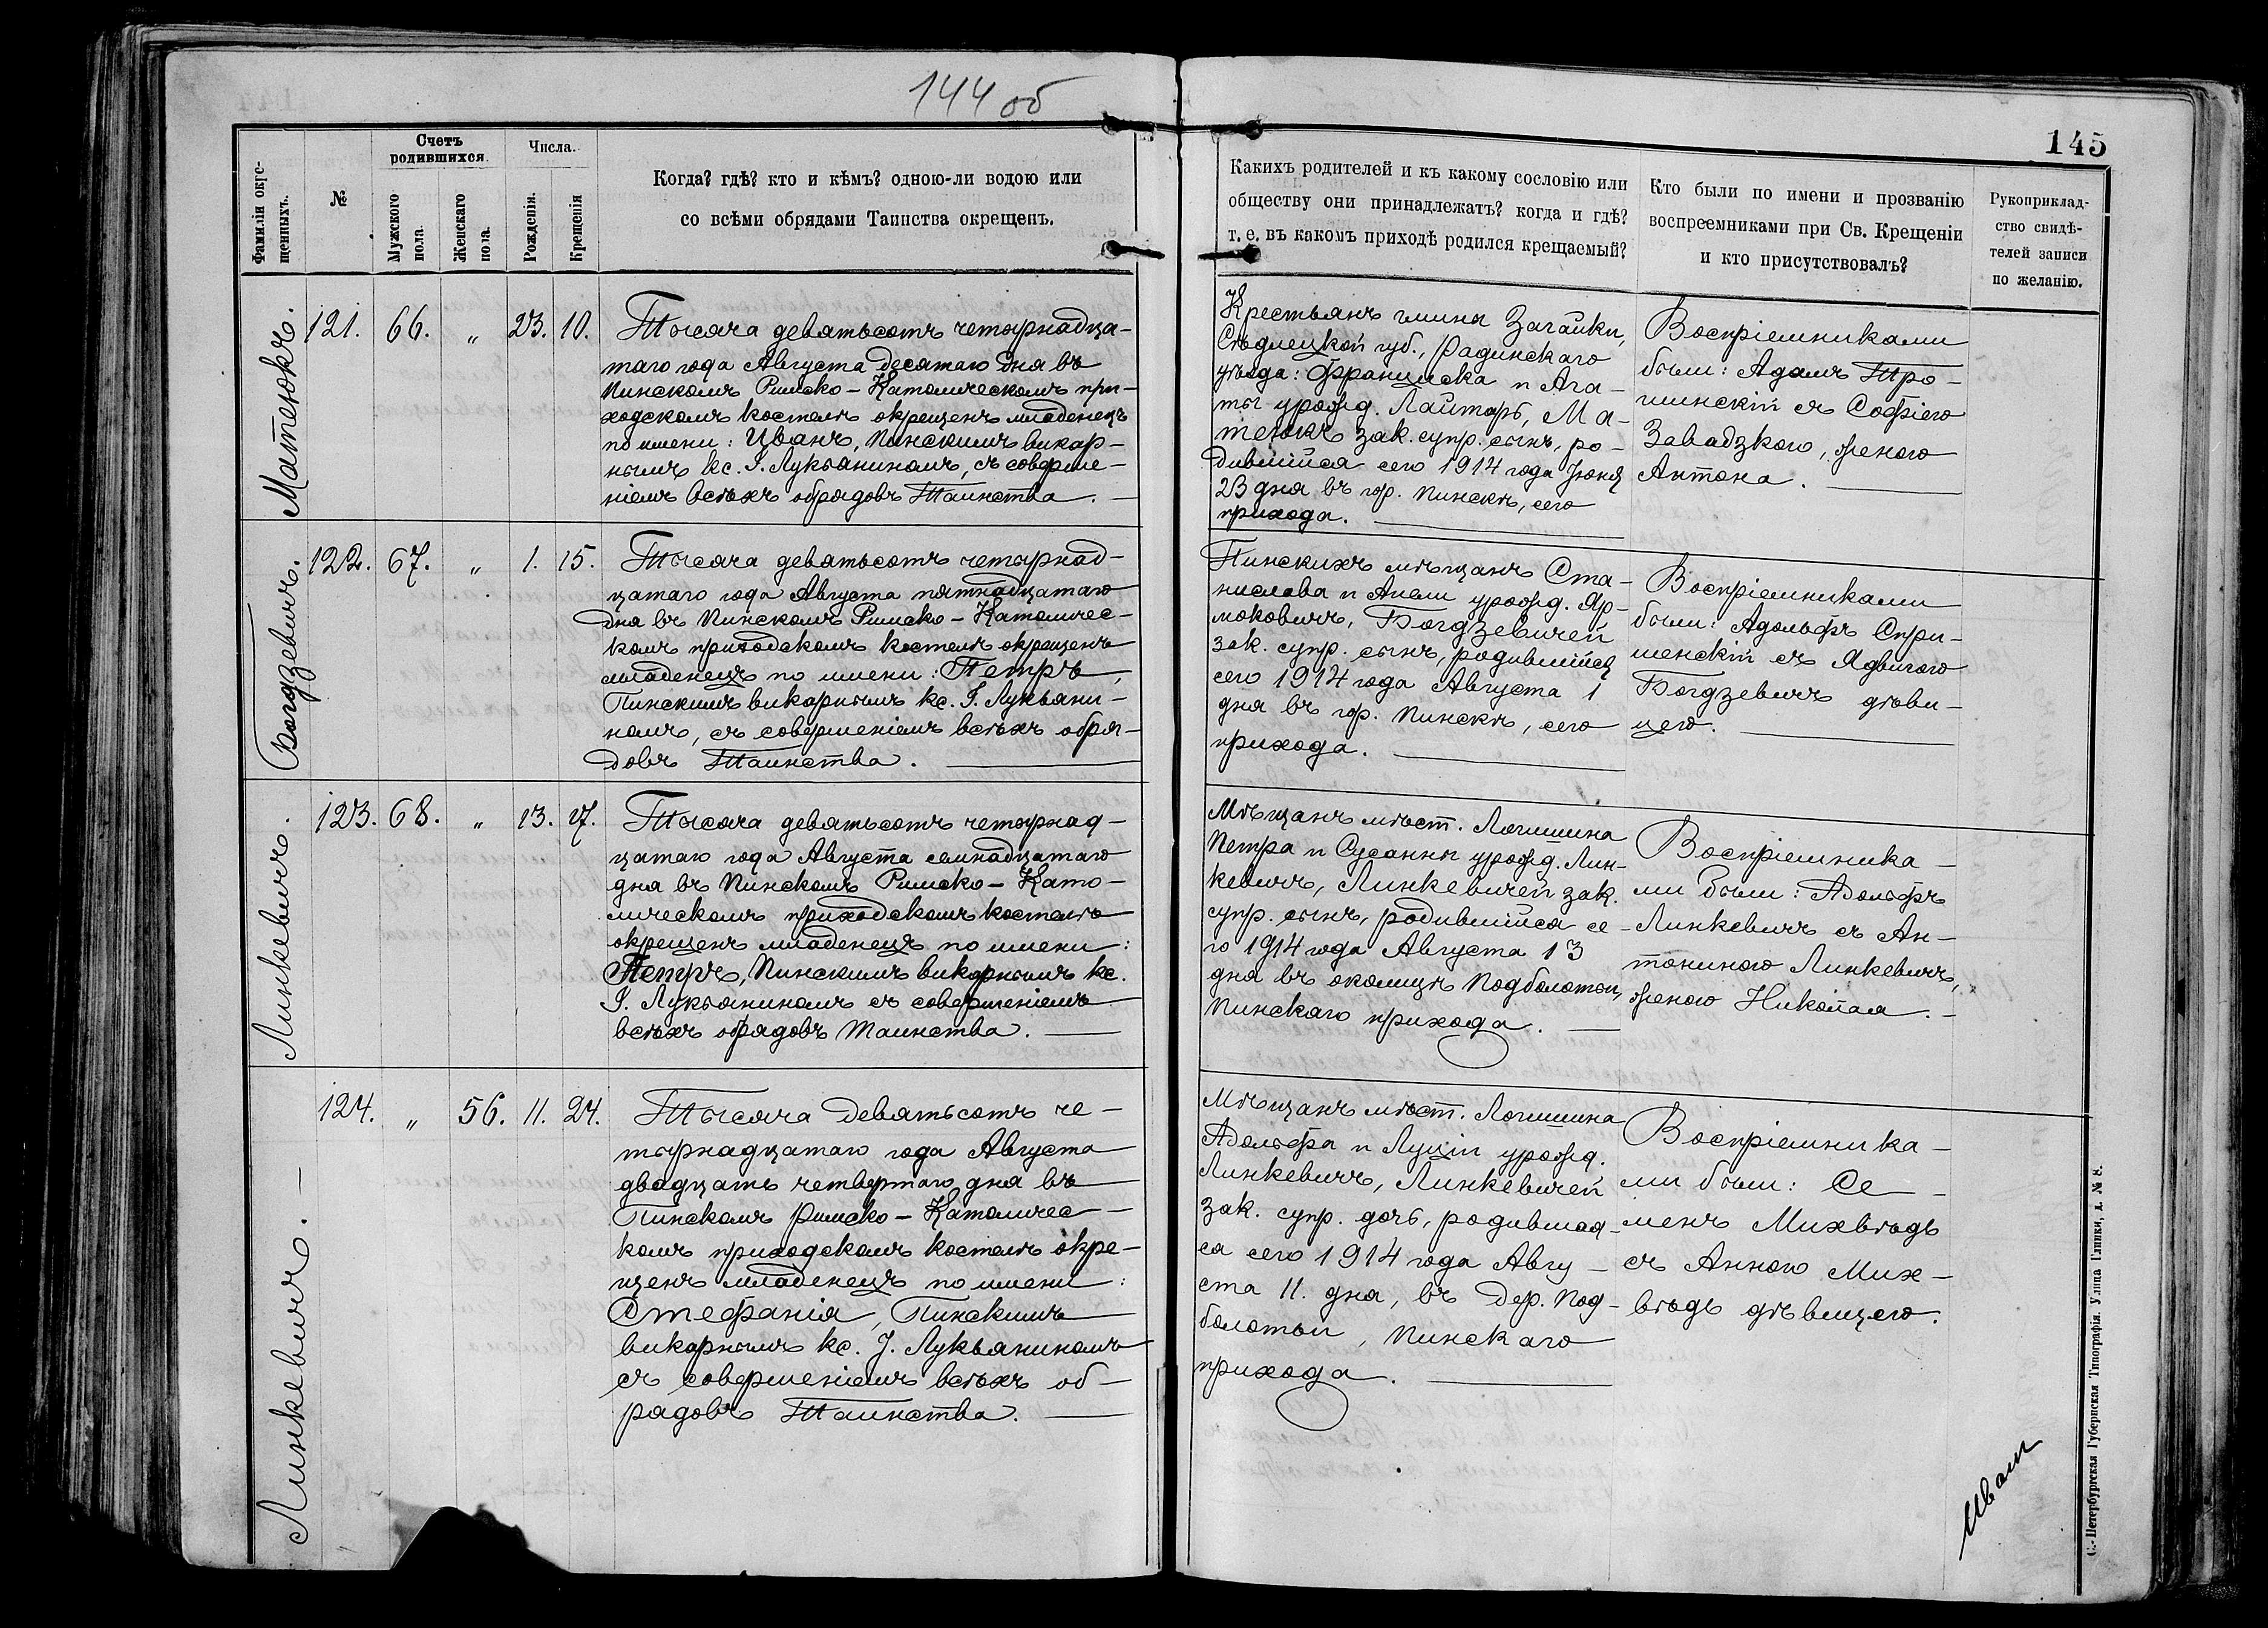 144 об
145
Фамиліи окре-
щенныхъ.
№
Счетъ
родившихся.
Мужского
пола.
Женскаго
пола.
Числа.
Рожденія.
Крещенія
Когда? гдѣ? кто и кѣмъ? одною-ли водою или
со всѣми обрядами Таинства окрещенъ.
Какихъ родителей и къ какому сословію или
обществу они принадлежатъ? когда и гдѣ?
т. е. въ какомъ приходѣ родился крещаемый?
Кто были по имени и прозванію
воспреемниками при Св. Крещеніи
и кто присутствовалъ?
Рукоприклад-
ство свидѣ-
телей записи
по желанію.
Матеюкъ.
121. 66. „ 23. 10.
Тысяча девятьсотъ четырнадца-
таго года Августа десятаго дня въ
Пинскомъ Римско-Католическомъ при-
ходскомъ костелѣ окрещенъ младенецъ
по имени: Иванъ, Пинскимъ викар-
нымъ кс. І. Лукьяниномъ, съ соверше-
ніемъ всѣхъ обрядовъ Таинства.
Крестьянъ гмины Загайки,
Сѣдлецкой губ., Радинскаго
уѣзда: Франциска и Ага-
ты урожд. Лайтаръ, Ма-
теюкъ зак. супр. сынъ, ро-
дившійся сего 1914 года Іюня
23 дня въ гор. Пинскѣ, сего
прихода.
Воспріемниками
были: Адамъ Тро-
шинскій съ Софіею
Завадзкою, женою
Антона.
Богдзевичъ.
122. 67. „ 1. 15.
Тысяча девятьсотъ четырнад-
цатаго года Августа пятнадцатаго
дня въ Пинскомъ Римско-Католичес-
комъ приходскомъ костелѣ окрещенъ
младенецъ по имени: Петръ,
Пинскимъ викарнымъ кс. І. Лукьяни-
номъ, съ совершеніемъ всѣхъ обря-
довъ Таинства.
Пинскихъ мѣщанъ Ста-
нислава и Анели урожд. Яр-
моковичъ, Богдзевичей
зак. супр. сынъ, родившійся
сего 1914 года Августа 1
дня въ гор. Пинскѣ, сего
прихода.
Воспріемниками
были: Адольфъ Спри-
шенскій съ Ядвигою
Богдзевичъ дѣви-
цею.
Линкевичъ.
123. 68. „ 13. 17.
Тысяча девятьсотъ четырнад-
цатаго года Августа семнадцатаго
дня въ Пинскомъ Римско-Като-
лическомъ приходскомъ костелѣ
окрещенъ младенецъ по имени:
Петръ, Пинскимъ викарнымъ кс.
І. Лукьяниномъ съ совершеніемъ
всѣхъ обрядовъ Таинства.
Мѣщанъ мѣст. Логишина
Петра и Сусанны урожд. Лин-
кевичъ, Линкевичей зак.
супр. сынъ, родившійся се-
го 1914 года Августа 13
дня въ околицѣ Подболотьи,
Пинскаго прихода.
Воспріемника-
ми были: Адольфъ
Линкевичъ съ Ан-
тониною Линкевичъ,
женою Николая.
Линкевичъ.
124. „ 56. 11. 24.
Тысяча девятьсотъ че-
тырнадцатаго года Августа
двадцать четвертаго дня въ
Пинскомъ Римско-Католичес-
комъ приходскомъ костелѣ окре-
щенъ младенецъ по имени:
Стефанія, Пинскимъ
викарнымъ кс. І. Лукьяниномъ
съ совершеніемъ всѣхъ об-
рядовъ Таинства.
Мѣщанъ мѣст. Логишина
Адольфа и Луціи урожд.
Линкевичъ, Линкевичей
зак. супр. дочь, родившая-
ся сего 1914 года Авгу-
ста 11. дня, въ дер. Под-
болотьи, Пинскаго
прихода.
Воспріемника-
ми были: Се-
менъ Михвѣдь
съ Анною Мих-
вѣдь дѣвицею.
С.-Петербургская Губернская Типографія. Улица Глинки, д. № 8.